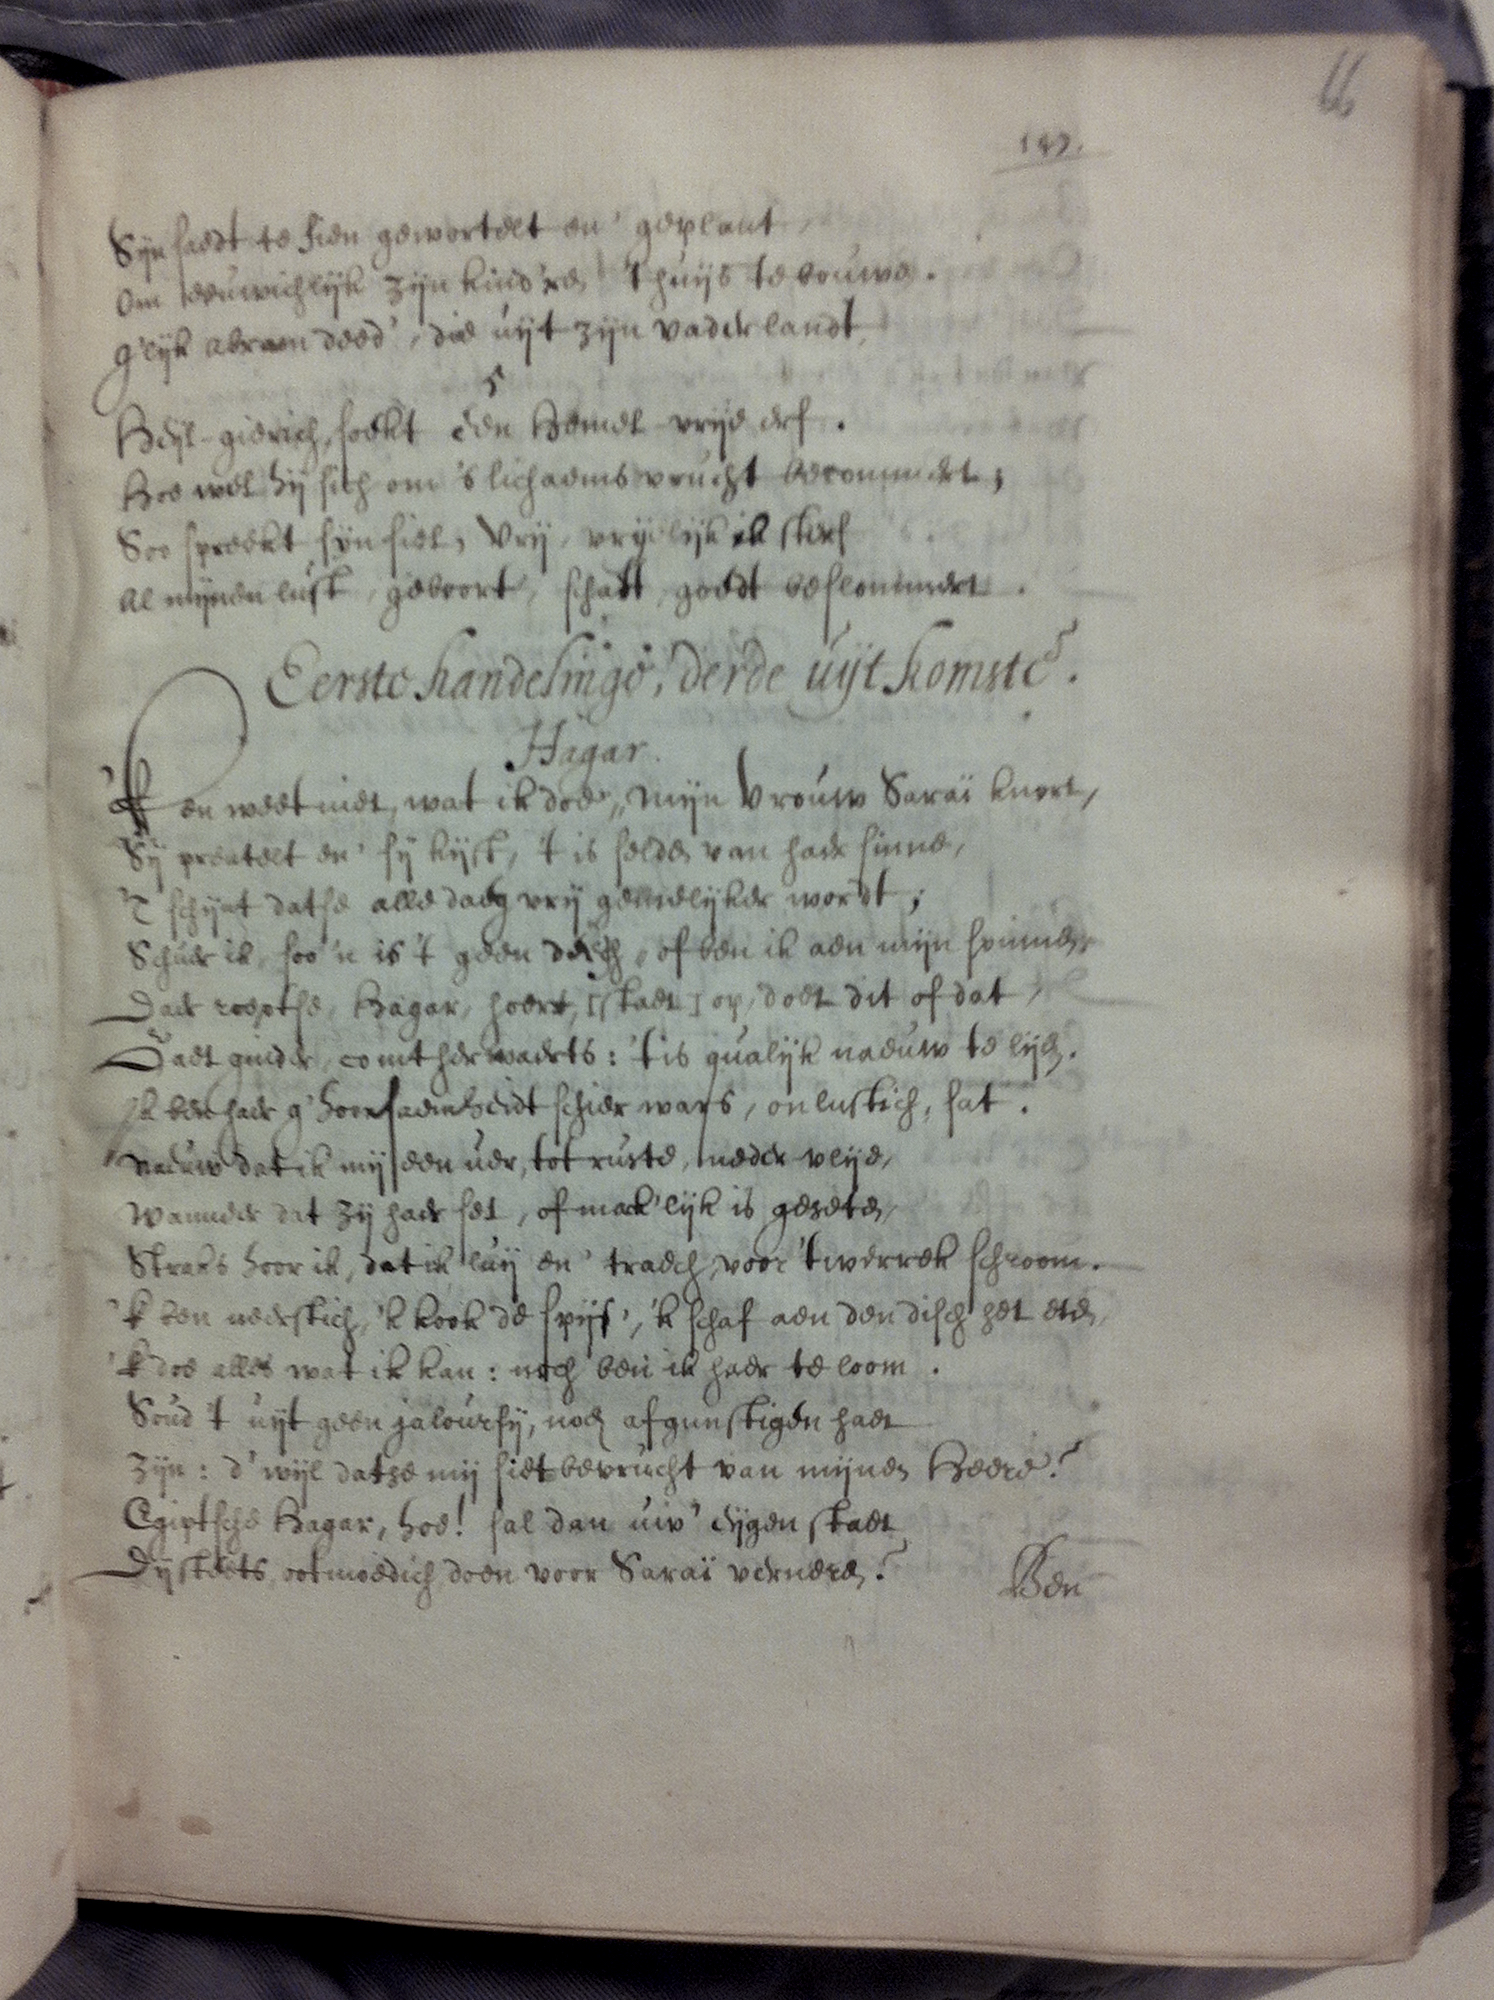 66
147.
Syn saedt te sien gewortelt en' geplant,
Om eeuwichlijk zijn kind'ren 't huijs te bouwen.
G'lijk abram deed', die uijt zijn vaderlandt,
5
Heijl-gierich, soekt een Hemel vrije erf.
Hoe wel hij sich om 's lichaems vrucht becommert;
Soo spreekt syn siel, Vrij, vrijelijk ik sterf
Al mijnen lust, geboort, schatt, goedt beslommert.
Eerste handelinge, derde uijtkomste.
Hagar.
'K en weet niet, wat ik doe, mijn Vrouw Saraï knort,
Sij preutelt en' sij kijft, 't is selden van haer sinne,
'T schijnt datse alle daeg vrij gemelijker wordt;
Schuer ik, soo 'n is 't geen deech, of ben ik aen mijn spinnen,
Daer roeptse, Hagar, hoert, [staet] op, doet dit of dat,
Gaet ginder, comt herwaerts: 't is qualijk naeuw te lijden.
Ik ben haer g'hoorsaemheidt schier wars, onlustich, sat.
Naeuw dat ik mij een uer, tot ruste, neder vlije,
Wanneer dat zij haer set, of mack'lijk is gezeten,
Straks hoor ik, dat ik luij en' traech, voor 't werrek schroom.
'k ben neerstich, 'k kook de spijs', 'k schaf aen den disch het eten,
'k doe alles wat ik kan: noch ben ik haer te loom.
Soud 't uijt geen jalourssij, noch afgunstigen haet
Zijn: d'wijl datse mij siet bevrucht van mijnen Heere?
Egiptsche Hagar, hoe! sal dan uw' eijgen staet
Dij steets ootmoedich doen voor Saraï verneren?
Ben